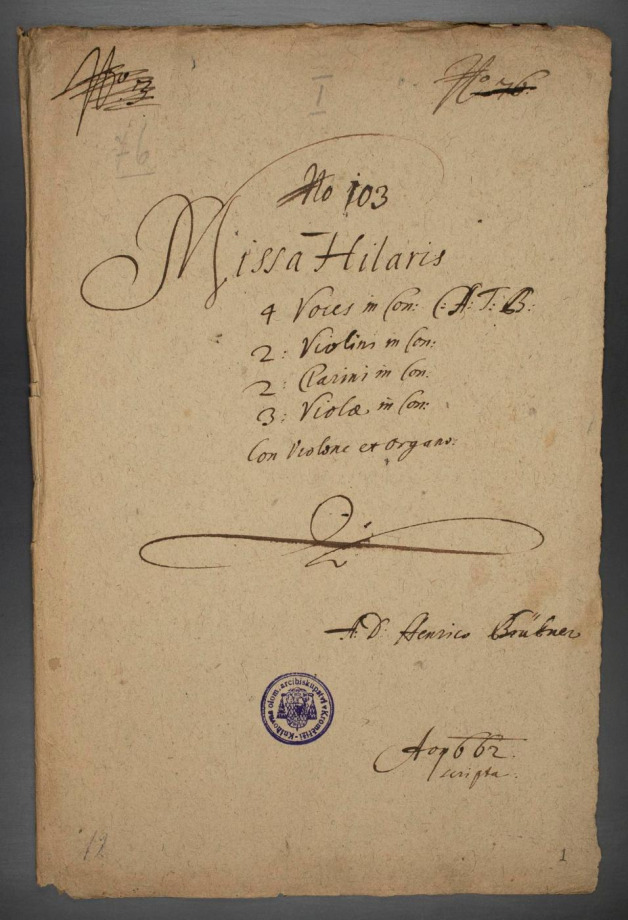 No 3
No 76
I
76
No 103
Missa Hilaris
4 Voces in Con: C: A: T: B:
2: Violini in Con:
2: Clarini in Con:
3: Violæ in Con:
Con Violone et Organo:
A: D: Henrico Brükner
Knihovna olom. arcibiskupství v Kroměříži
scripta.
19
1